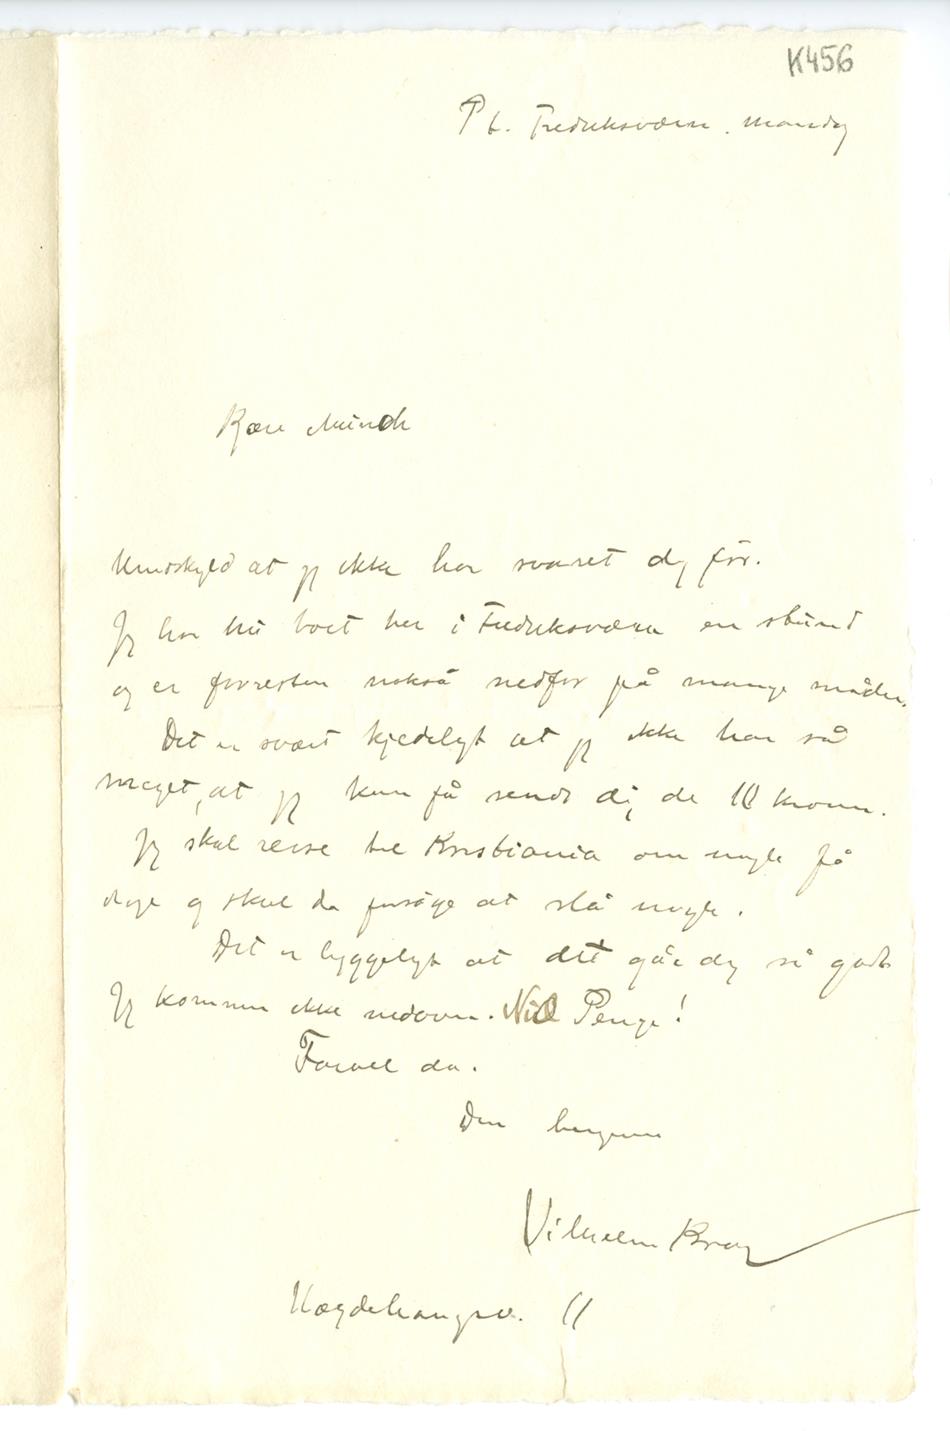 K456
Pt. Fredriksværn. Mandag
Kjære Munch
Undskyld at jeg ikke har svaret dig för.
Jeg har nu boet her i Fredriksværn en stund
og er forresten nokså nedfor på mange måder.
Det er svært kjedeligt at jeg ikke har så
meget, at jeg kan få sendt dig de 10 kroner.
Jeg skal reise til Kristiania om nogle få
dage og skal da forsöge at slå nogle.
Det er hyggeligt at det går dig så godt
Jeg kommer ikke nedover. Nil Penge!
Farvel da.
Din hengivne
Vilhelm Krag
Hægdehaugsv. 11